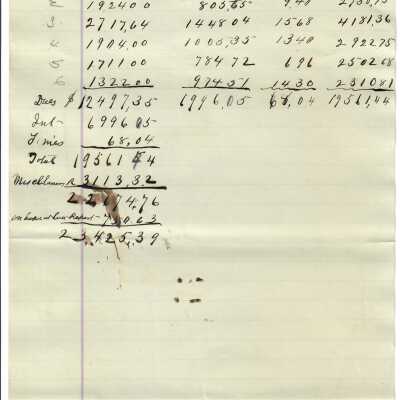 2 1924 00 805,65 9,40
3. 2717,64 1448 04 1568 4181,36
4 1904,00 1005,35 1340 2922 75
5 1711 00 784 72 696 2502 68
6 1322 00 974 51 14 30 2310 81
Dues $ 12497,35 6996,05 68,04 19561,44
Int- 6996 05
Fines 68,04
Total 19561 44
Miscellaneous R 3113,32
22674,76
on hand at last Report
23425,39